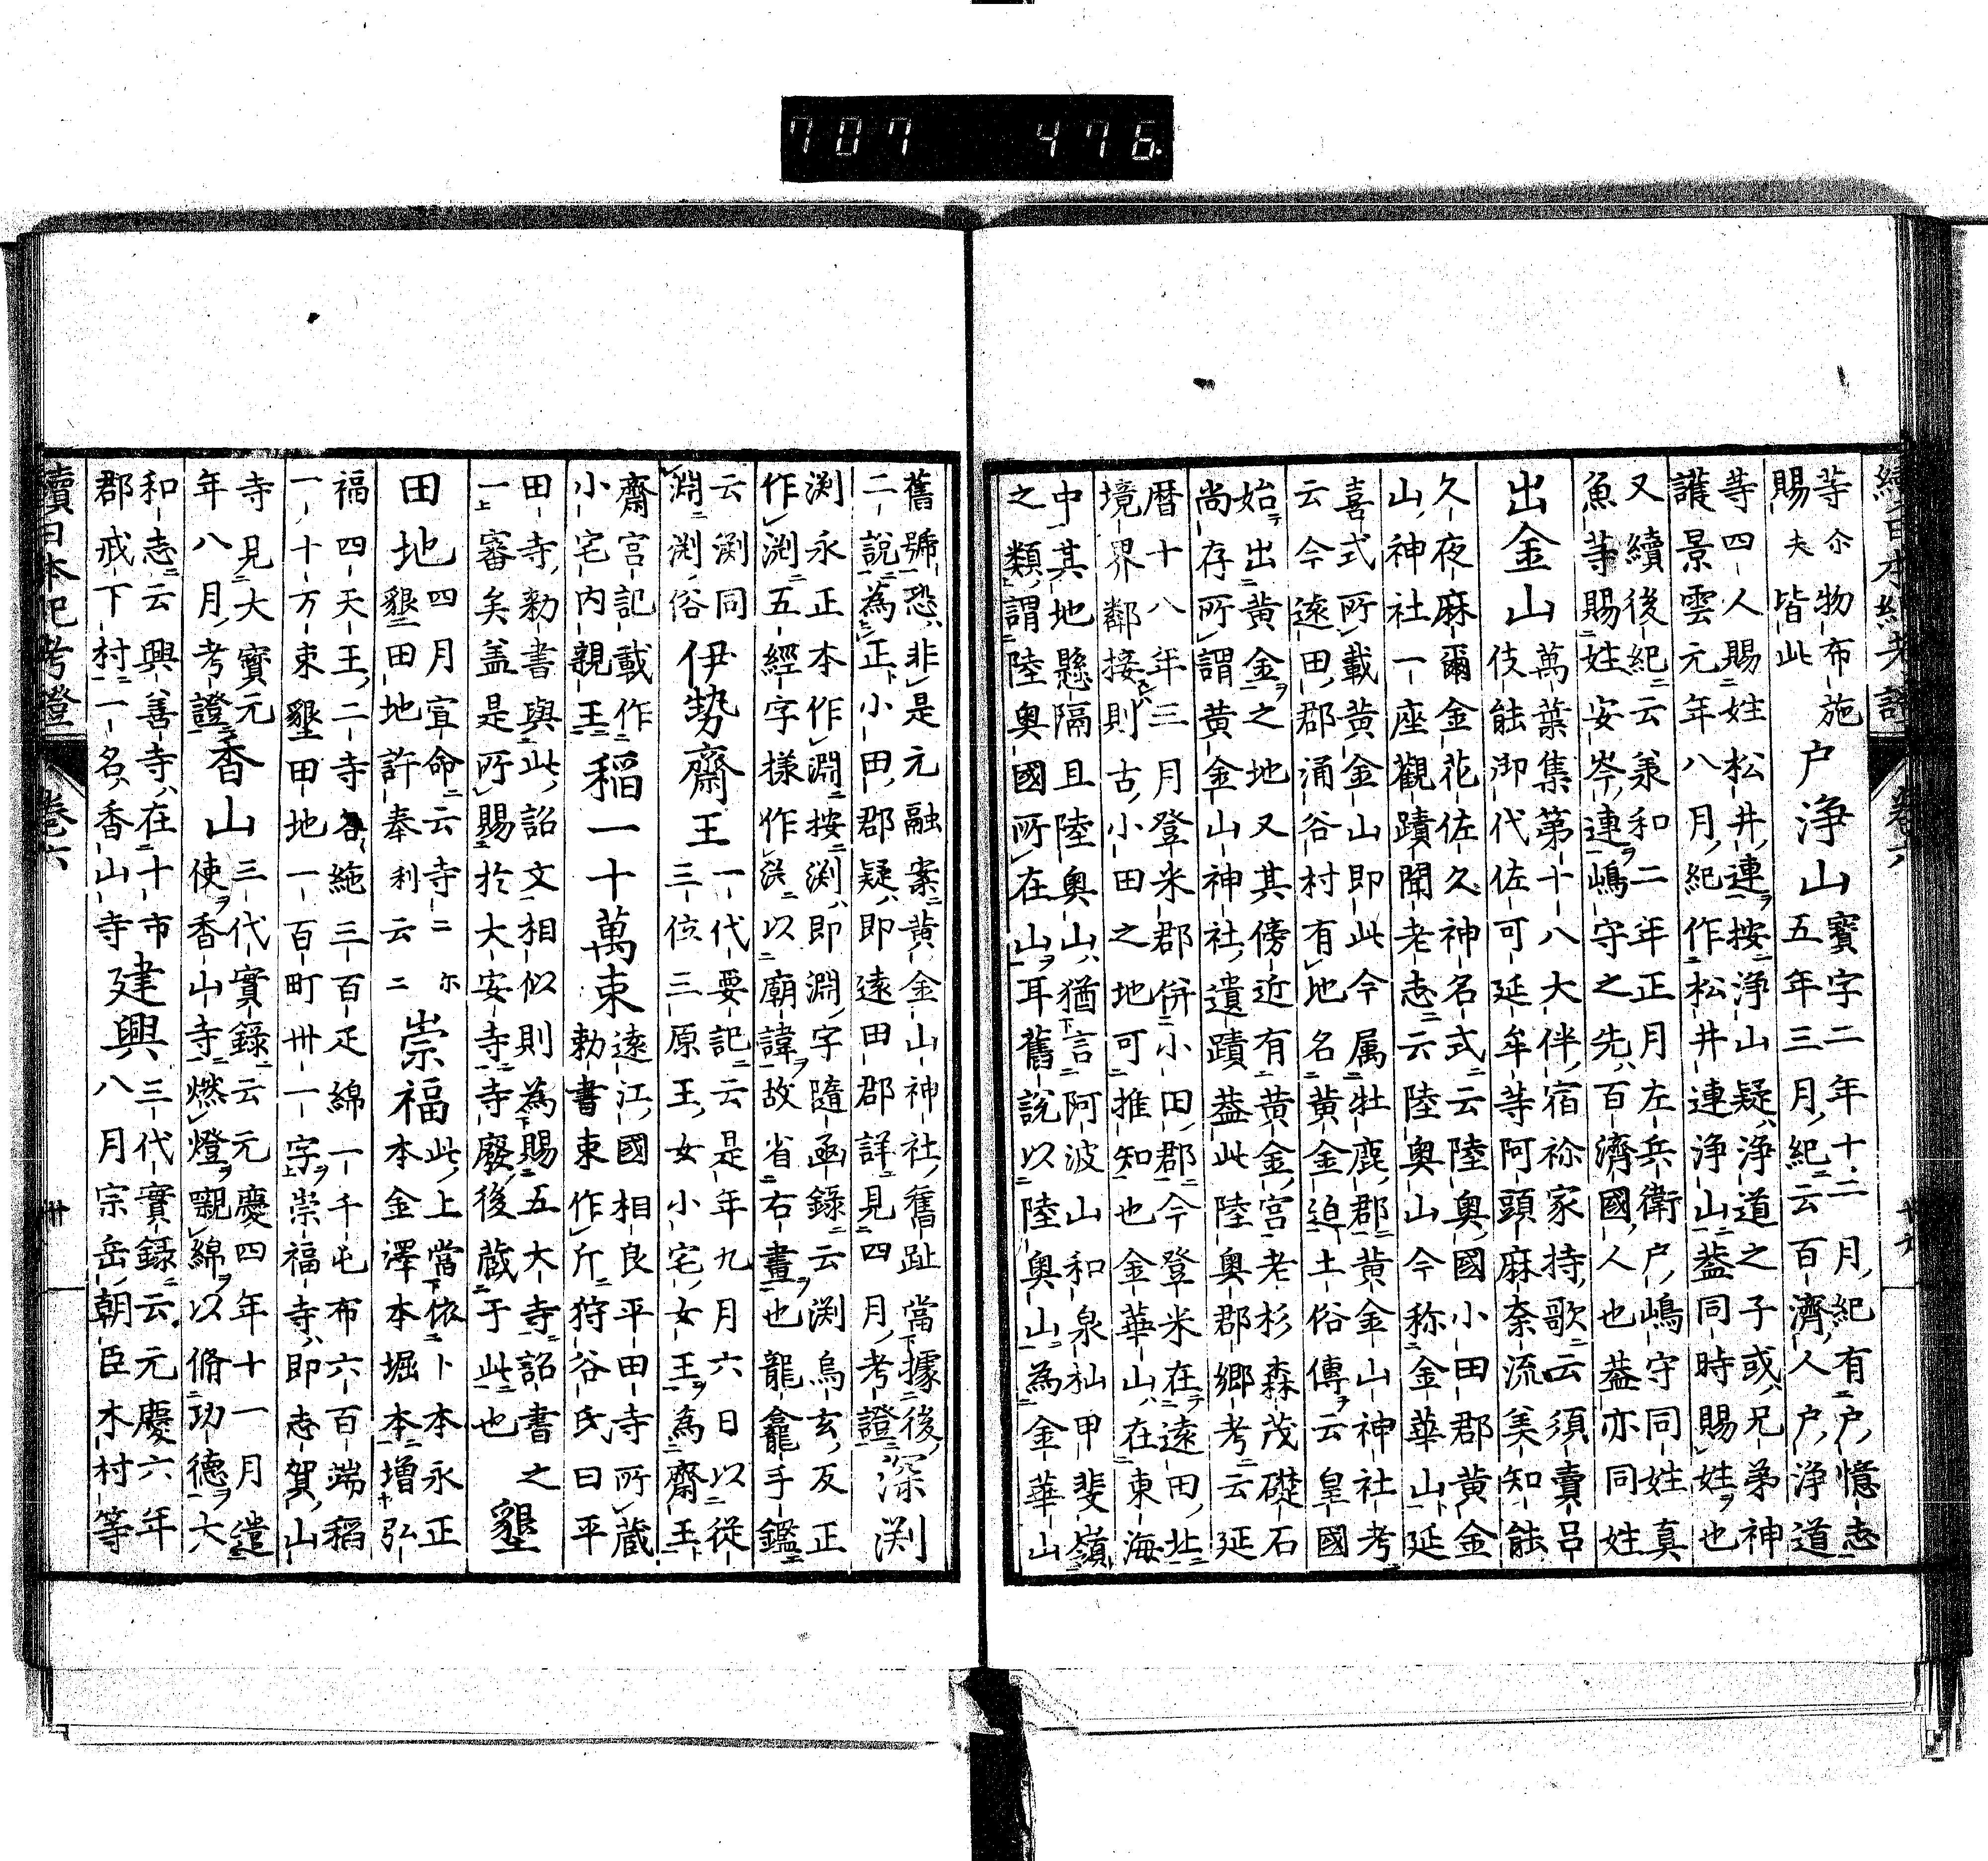 續日本紀考證 卷六 廿九
等尓物布施
賜夫皆此
户浄山
寳字二年十二月紀有户憶志
五年三月紀云百濟人户浄道
等四人賜姓松井連按浄山疑浄道之子或兄弟神
護景雲元年八月紀作松井連浄山盖同時賜姓也
又續後紀云兼和二年正月左兵衛户嶋守同姓真
魚等賜姓安岑連嶋守之先百濟國人也盖亦同姓
出金山
萬葉集第十八大伴宿祢家持歌云須賣呂
伎能御代佐可延牟等阿頭麻奈流美知能
久夜麻爾金花佐久神名式云陸奥國小田郡黄金
山神社一座觀蹟聞老志云陸奥山今称金華山延
喜式所載黄金山即此今属牡鹿郡黄金山神社考
云今遠田郡涌谷村有地名黄金迫土俗傳云皇國
始出黄金之地又其傍近有黄金宮老杉森茂礎石
尚存所謂黄金山神社遺蹟盖此陸奥郡郷考云延
暦十八年三月登米郡併小田郡今登米在遠田北
境界鄰接則古小田之地可推知也金華山在東海
中其地懸隔且陸奥山猶言阿波山和泉杣甲斐嶺
之類謂陸奥國所在山耳舊説以陸奥山為金華山
舊號恐非是元融案黄金山神社舊趾當據後
二説為正小田郡疑即遠田郡詳見四月考證
深渕
渕永正本作淵按渕即淵字隨函錄云渕烏玄反正
作渕五經字様作渁以廟諱故省右畫也龍龕手鑑
云渕同
淵渕俗
伊勢齋王
一代要記云是年九月六日以從
三位三原王女小宅女王為齋王
齋宮記載作
小宅内親王
稲一十萬束
遠江國相良平田寺所蔵
勅書束作斤狩谷氏曰平
田寺勅書與此詔文相似則為賜五大寺詔書之
一審矣盖是所賜於大安寺寺廢後蔵于此也
墾
田地
四月宣命云寺二尓
墾田地許奉利云二
崇福
此上當依卜本永正
本金澤本堀本增弘
福四天王二寺各絁三百疋綿一千屯布六百端稲
一十万束墾田地一百町卅一字崇福寺即志賀山
寺見大寳元
年八月考證
香山
三代實錄云元慶四年十一月遣
使香山寺燃燈嚫綿以脩功德大
和志云興善寺在十市
郡戒下村一名香山寺
建興
三代實録云元慶六年
八月宗岳朝臣木村等
續日本紀考證 卷六 卅
707 476